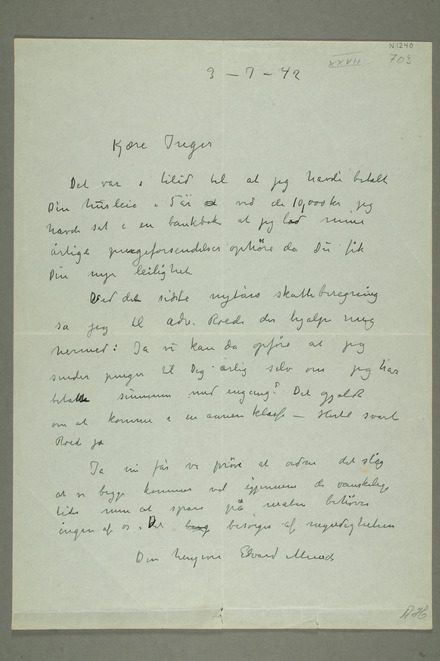 N1240
XXVII 703
3 – 7 – 42
Kjære Inger
Det var i tillid til at jeg havde betalt
Din husleie i 5 år ved de 10,000 kr jeg
havde sat i en bankbok at jeg lod mine
årlige pengeforsendelser ophöre da Du fik
Din nye leilighet
Ved det sidste nytårs skatteberegning
sa jeg til adv. Roede der hjalp mig
hermed: Ja vi kan da opföre at jeg
sender penger til Dig årlig selv om jeg har
betalt summen med engang? Det gjaldt
om at komme i en annen klasse – Hertil svarte
Roede ja
Ja nu får vi pröve at ordne det slig
at vi begge kommer vel igjennem de vanskelige
tider men at spare på maten behöver
ingen af os. Det besörges af myndighetene
Din hengivne Edvard Munch